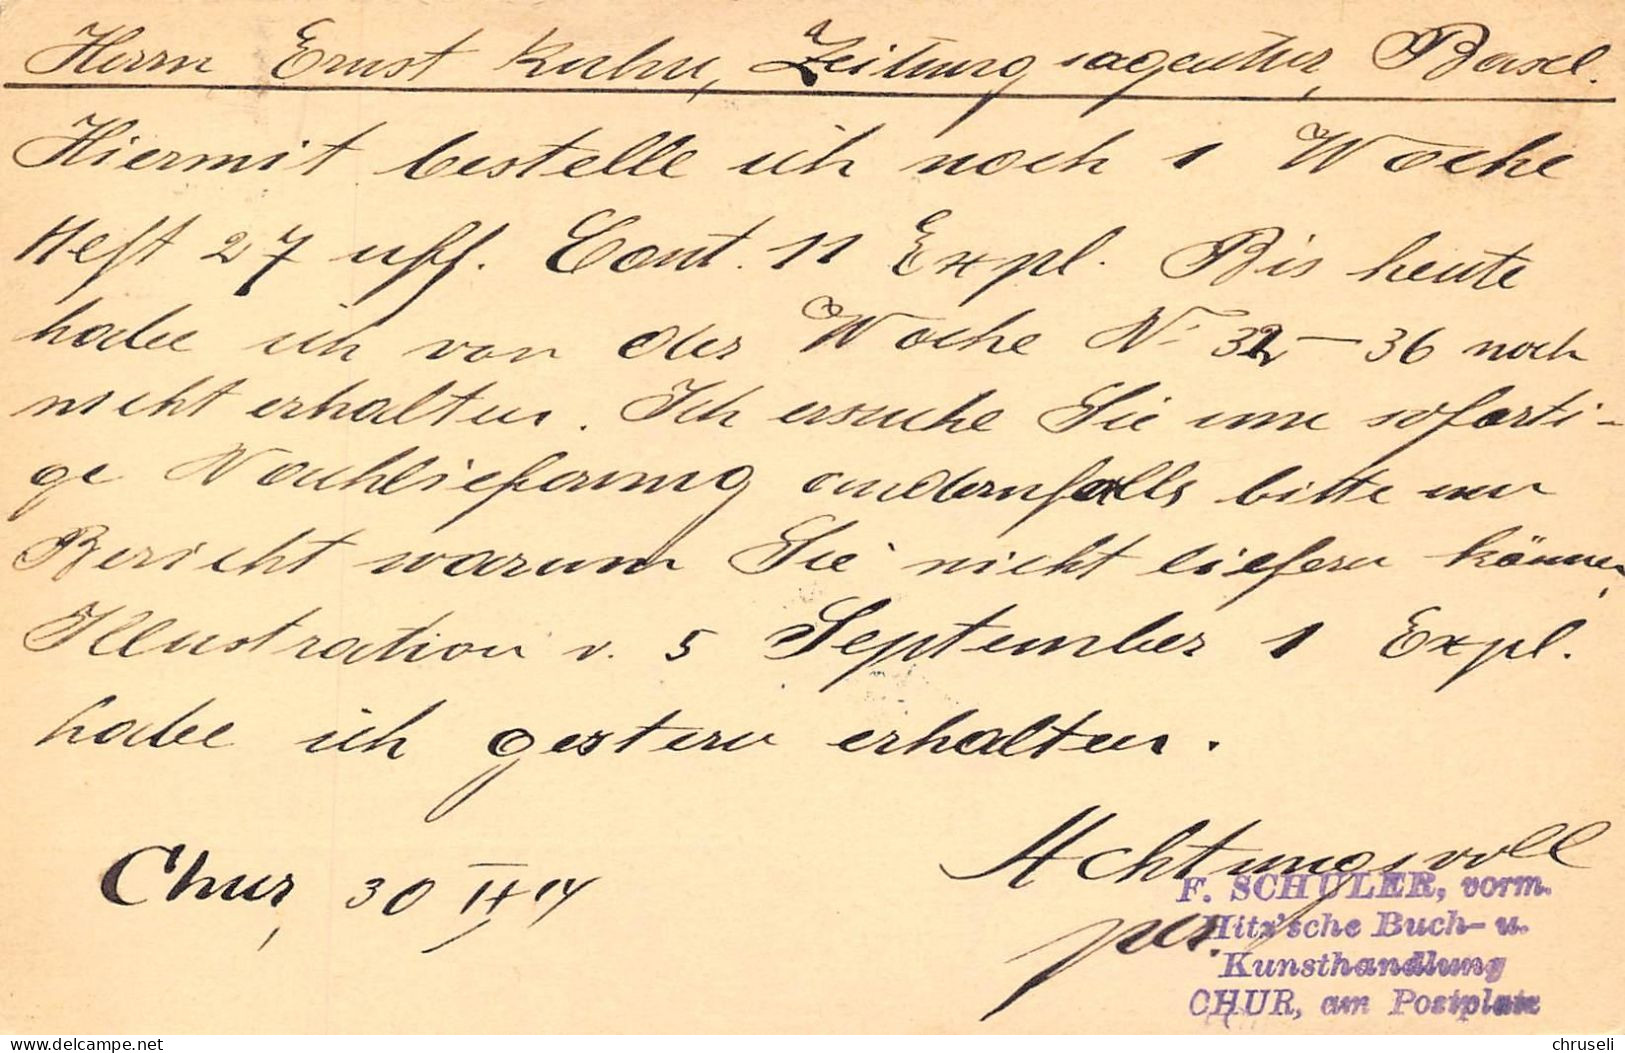 Herrn Ernst Kuhn, Zeitungsagentur, Basel.
Hiermit bestelle ich noch 1 Woche
Heft 27 uff. Cont. 11 Expl. Bis heute
habe ich von der Woche No 32-36 noch
nicht erhalten. Ich ersuche Sie um soforti-
ge Nachlieferung andernfalls bitte um
Bericht warum Sie nicht liefern können,
Illustration v. 5 September 1 Expl.
habe ich gestern erhalten.
Achtungsvoll
Chur, 30 IX 14
F. SCHULER, vorm.
per. Hitz'sche Buch- u.
Kunsthandlung
CHUR, am Postplatz
chruseli